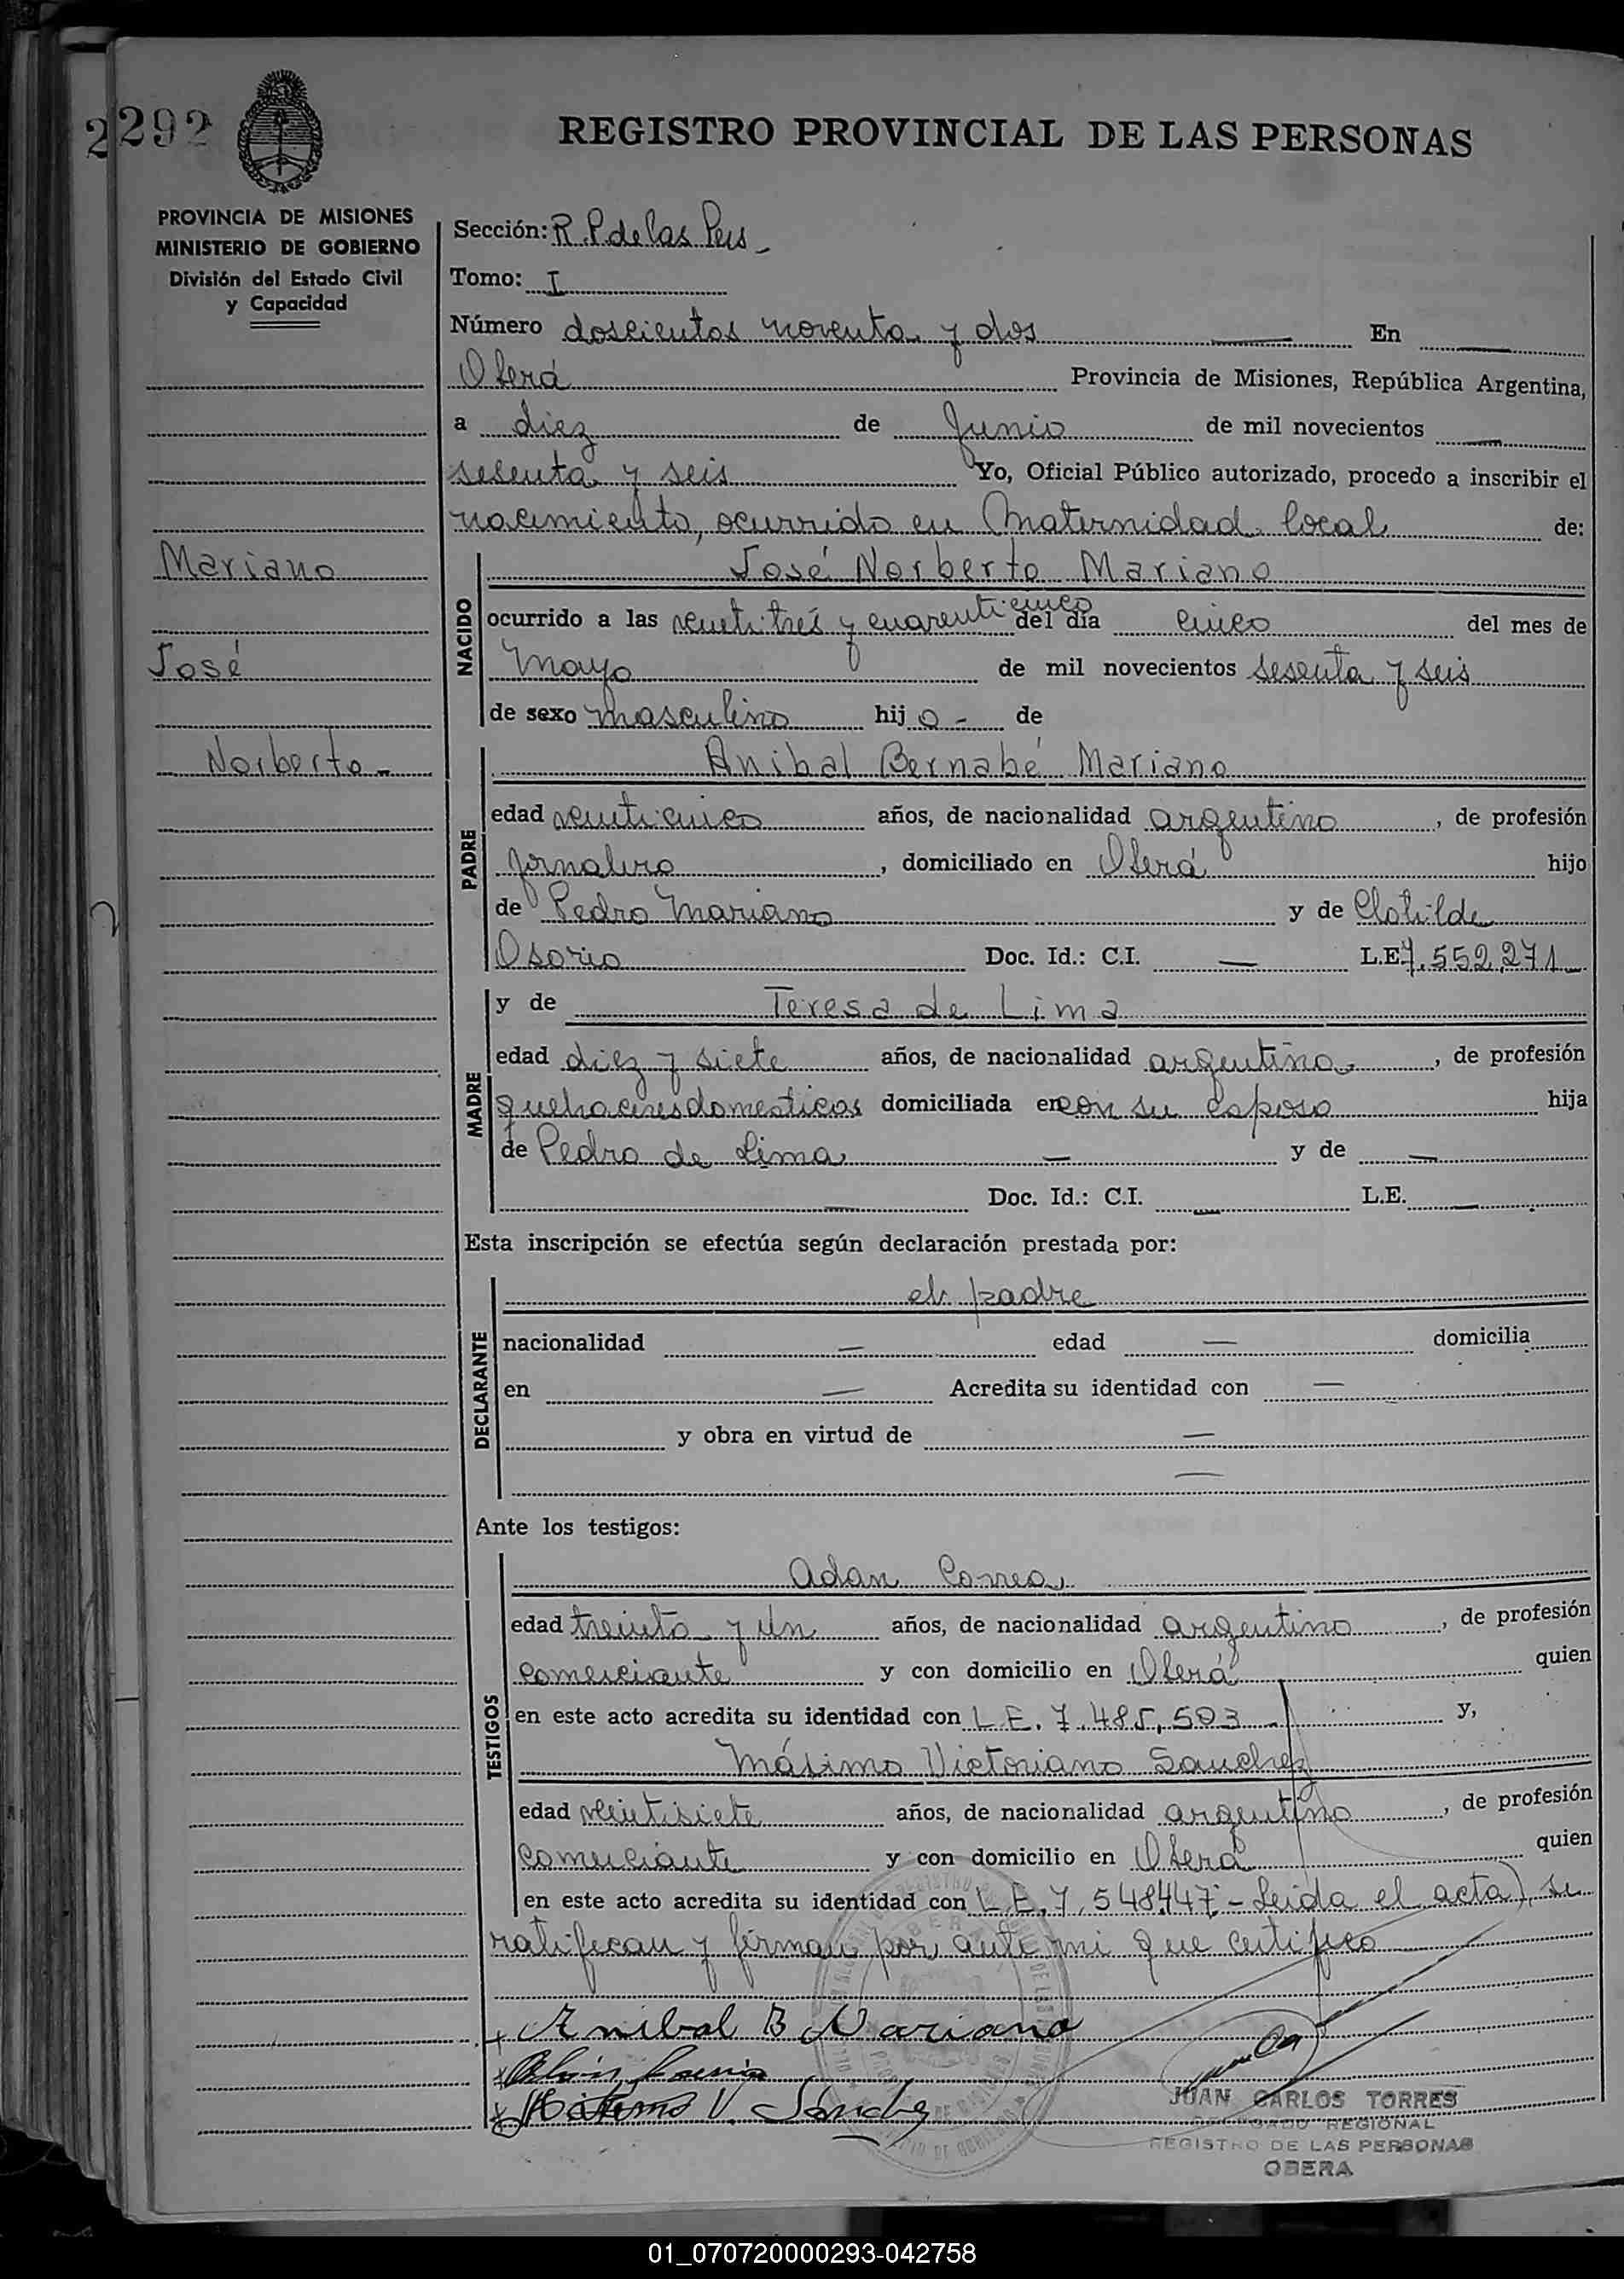 2292
REGISTRO PROVINCIAL DE LAS PERSONAS
PROVINCIA DE MISIONES
MINISTERIO DE GOBIERNO
División del Estado Civil
y Capacidad
Sección: R.P. de las Pers
Tomo: I
Número doscientos noventa y dos — En —
Oberá Provincia de Misiones, República Argentina,
a diez de Junio de mil novecientos —
sesenta y seis Yo, Oficial Público autorizado, procedo a inscribir el
nacimiento, ocurrido en Maternidad local de:
Mariano
José
Norberto -
NACIDO
José Norberto Mariano
ocurrido a las veintitrés y cuarenticinco del día cinco del mes de
Mayo de mil novecientos sesenta y seis
de sexo masculino hij o - de
PADRE
Anibal Bernabé Mariano
edad veinticinco años, de nacionalidad argentino, de profesión
jornalero, domiciliado en Oberá hijo
de Pedro Mariano y de Clotilde
Osorio Doc. Id.: C.I. — L.E. 7.552.271 —
MADRE
y de Teresa de Lima
edad diez y siete años, de nacionalidad argentina, de profesión
quehaceres domesticos domiciliada en con su esposo hija
de Pedro de Lima — y de —
— Doc. Id.: C.I. — L.E. —
Esta inscripción se efectúa según declaración prestada por:
DECLARANTE
el padre
nacionalidad — edad — domicilia
en — Acredita su identidad con —
y obra en virtud de —
—
Ante los testigos:
TESTIGOS
Adan Correa
edad treinta y un años, de nacionalidad argentino, de profesión
comerciante y con domicilio en Oberá quien
en este acto acredita su identidad con L.E. 7.485.503 y,
Máximo Victoriano Sanchez
edad veintisiete años, de nacionalidad argentino, de profesión
comerciante y con domicilio en Oberá quien
en este acto acredita su identidad con L.E. 7.548.447 - Leida el acta, se
ratifican y firman por ante mi que certifico
Anibal B Mariano
Máximo V. Sánchez
JUAN CARLOS TORRES
DELEGADO REGIONAL
REGISTRO DE LAS PERSONAS
OBERA
01_070720000293-042758